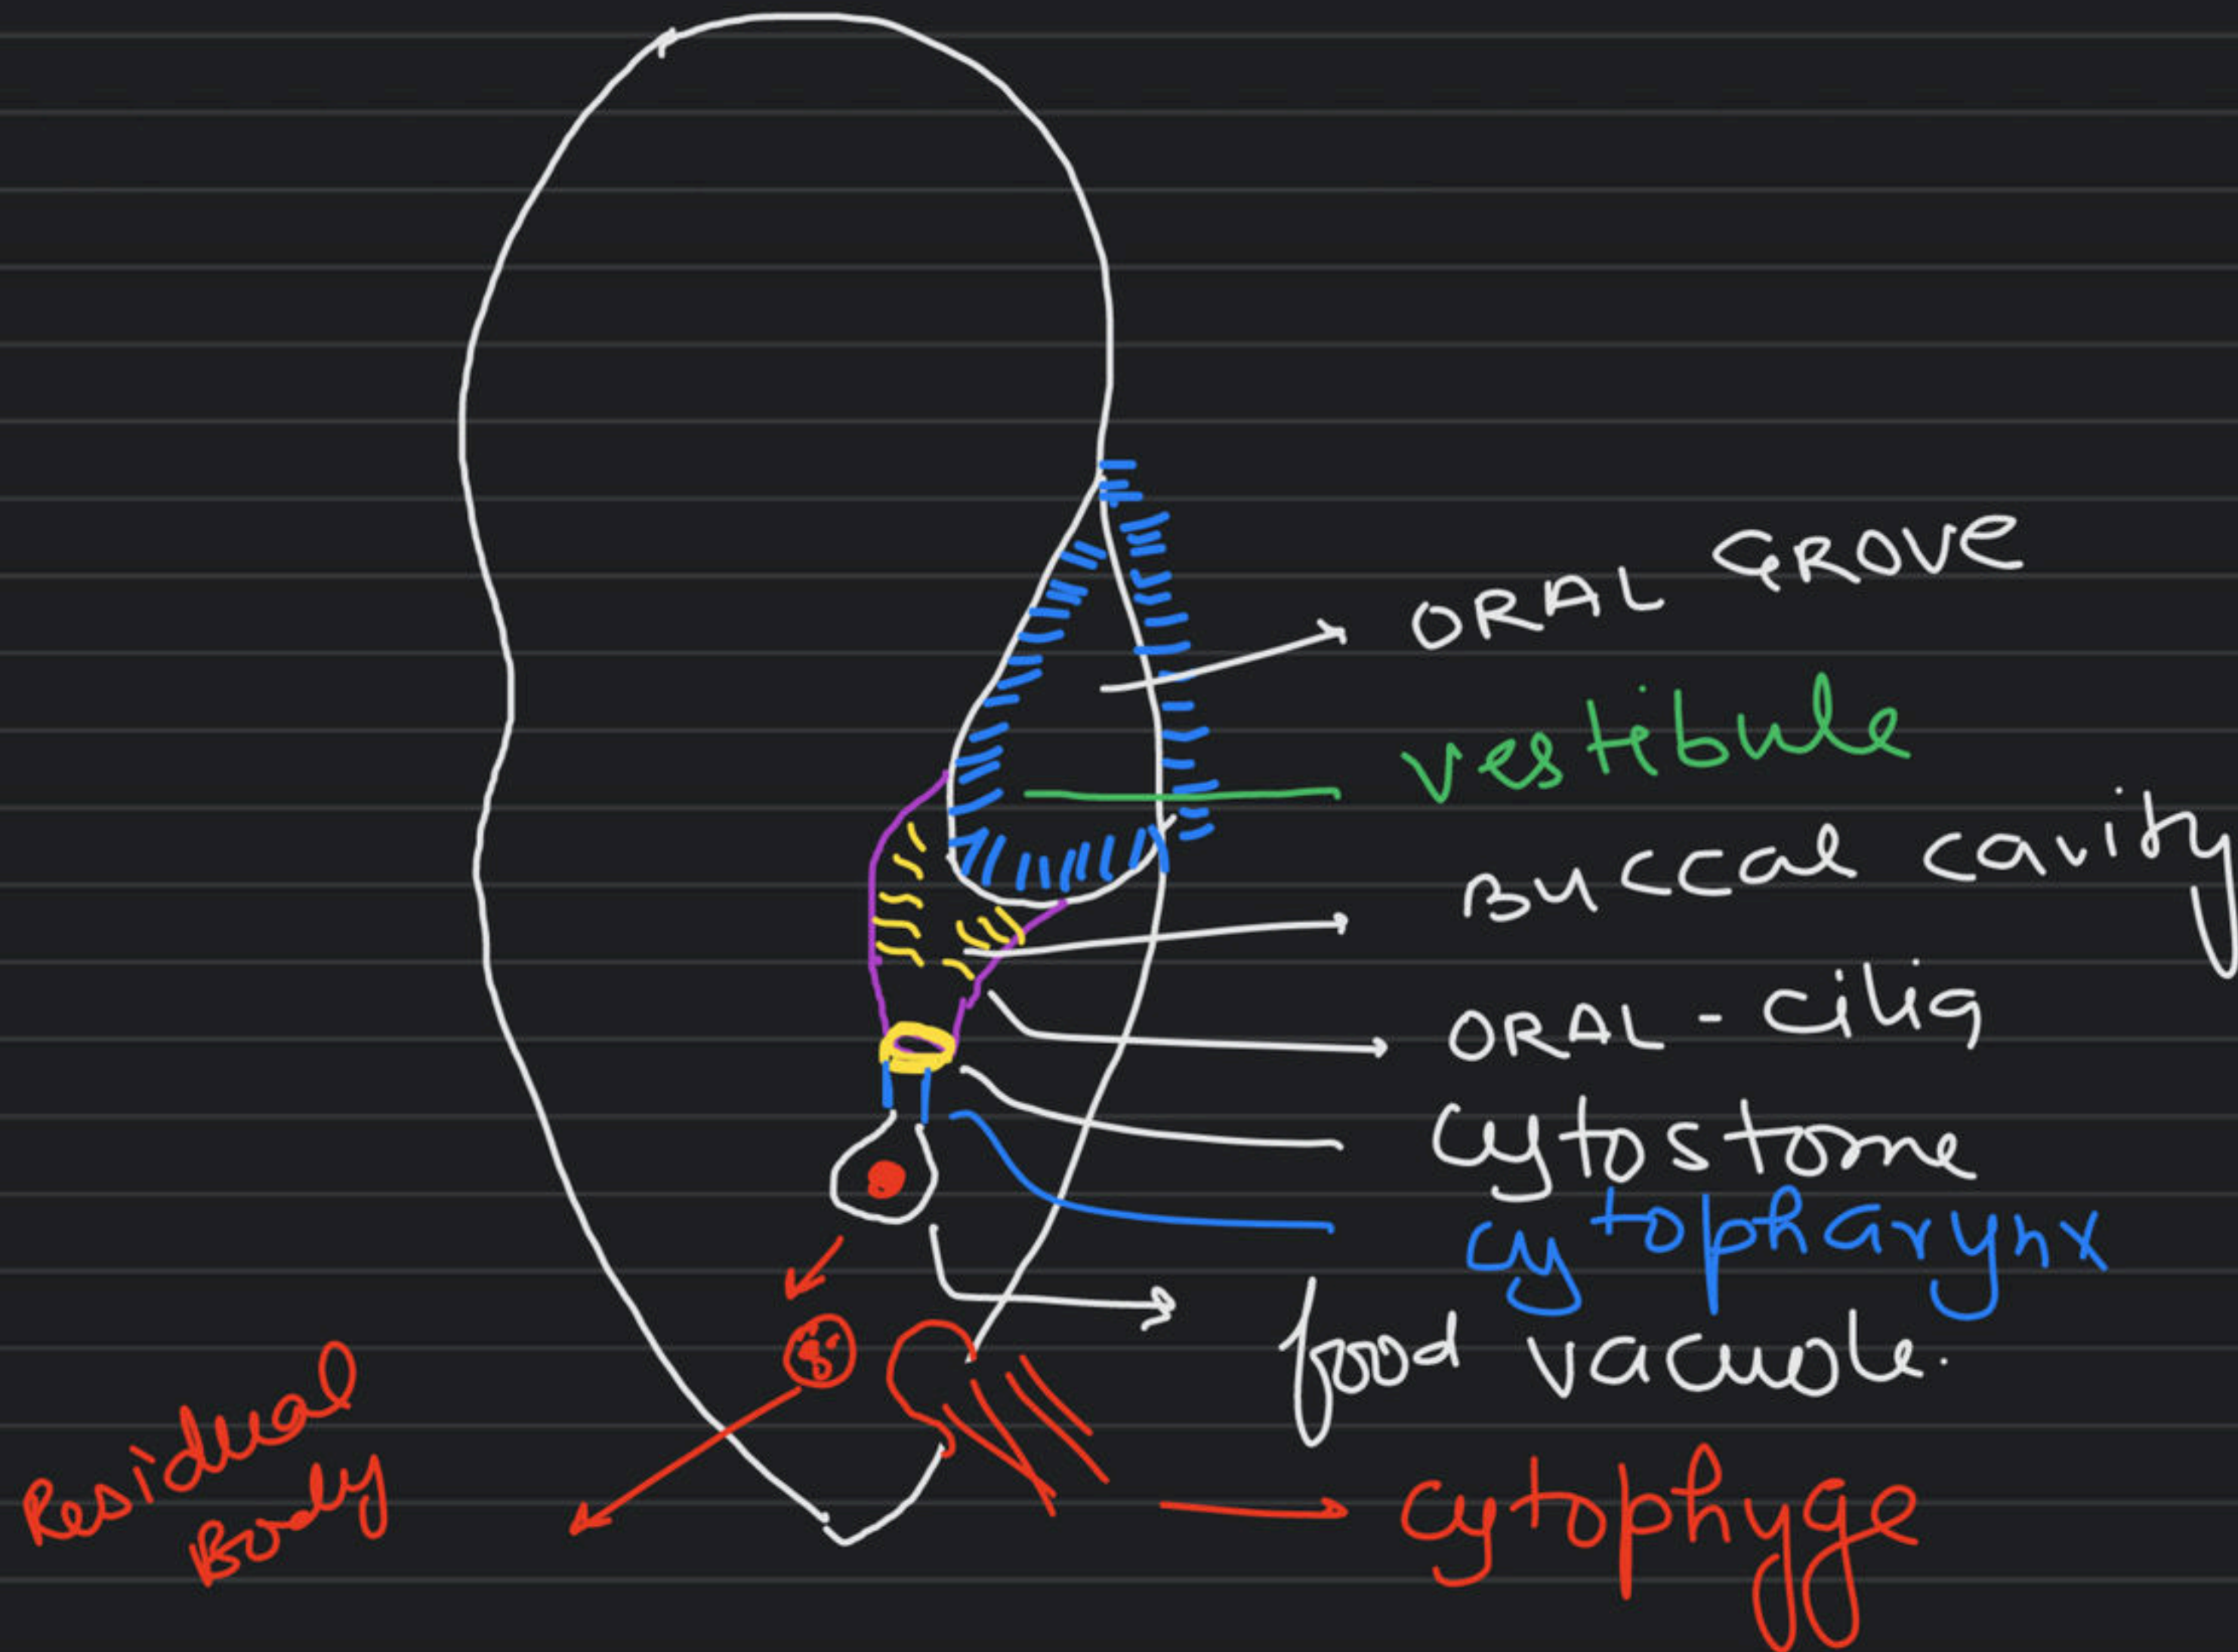 ORAL GROVE
vestibule
Buccal cavity
ORAL - cilia
cytostome
cytopharynx
food vacuole.
cytophyge
Residual
Body